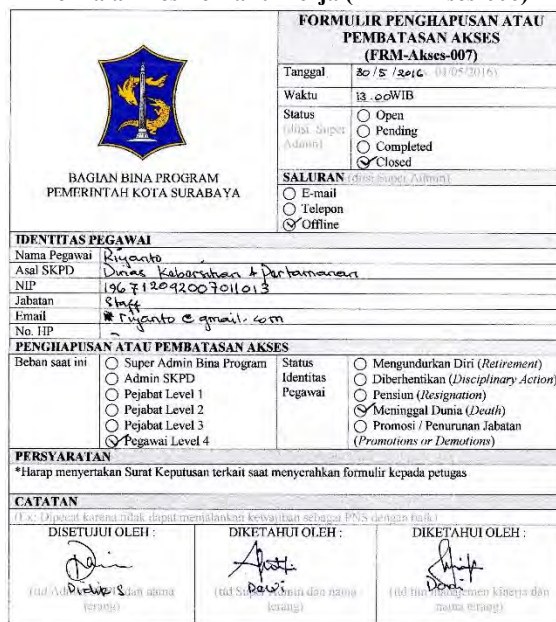 FORMULIR PENGHAPUSAN ATAU
PEMBATASAN AKSES
(FRM-Akses-007)
Tanggal 30/5/2016 01/05/2016)
Waktu 13.00 WIB
Status
(diisi Super Admin)
Open
Pending
Completed
Closed
BAGIAN BINA PROGRAM
PEMERINTAH KOTA SURABAYA
SALURAN (diisi Super Admin)
E-mail
Telepon
Offline
IDENTITAS PEGAWAI
Nama Pegawai Riyanto
Asal SKPD Dinas Kebersihan & Pertamanan
NIP 196712092007011013
Jabatan Staff
Email riyanto@gmail.com
No. HP -
PENGHAPUSAN ATAU PEMBATASAN AKSES
Beban saat ini
Super Admin Bina Program
Admin SKPD
Pejabat Level 1
Pejabat Level 2
Pejabat Level 3
Pegawai Level 4
Status Identitas Pegawai
Mengundurkan Diri (Retirement)
Diberhentikan (Disciplinary Action)
Pensiun (Resignation)
Meninggal Dunia (Death)
Promosi / Penurunan Jabatan
(Promotions or Demotions)
PERSYARATAN
*Harap menyertakan Surat Keputusan terkait saat menyerahkan formulir kepada petugas
CATATAN
(Ex: Dipecat karena tidak dapat menjalankan kewajiban sebagai PNS dengan baik)
DISETUJUI OLEH :
Didik S
dan nama
terang)
DIKETAHUI OLEH :
Dewi
(ttd Super Admin dan nama
terang)
DIKETAHUI OLEH :
Doni
(ttd tim manajemen kinerja dan
nama terang)